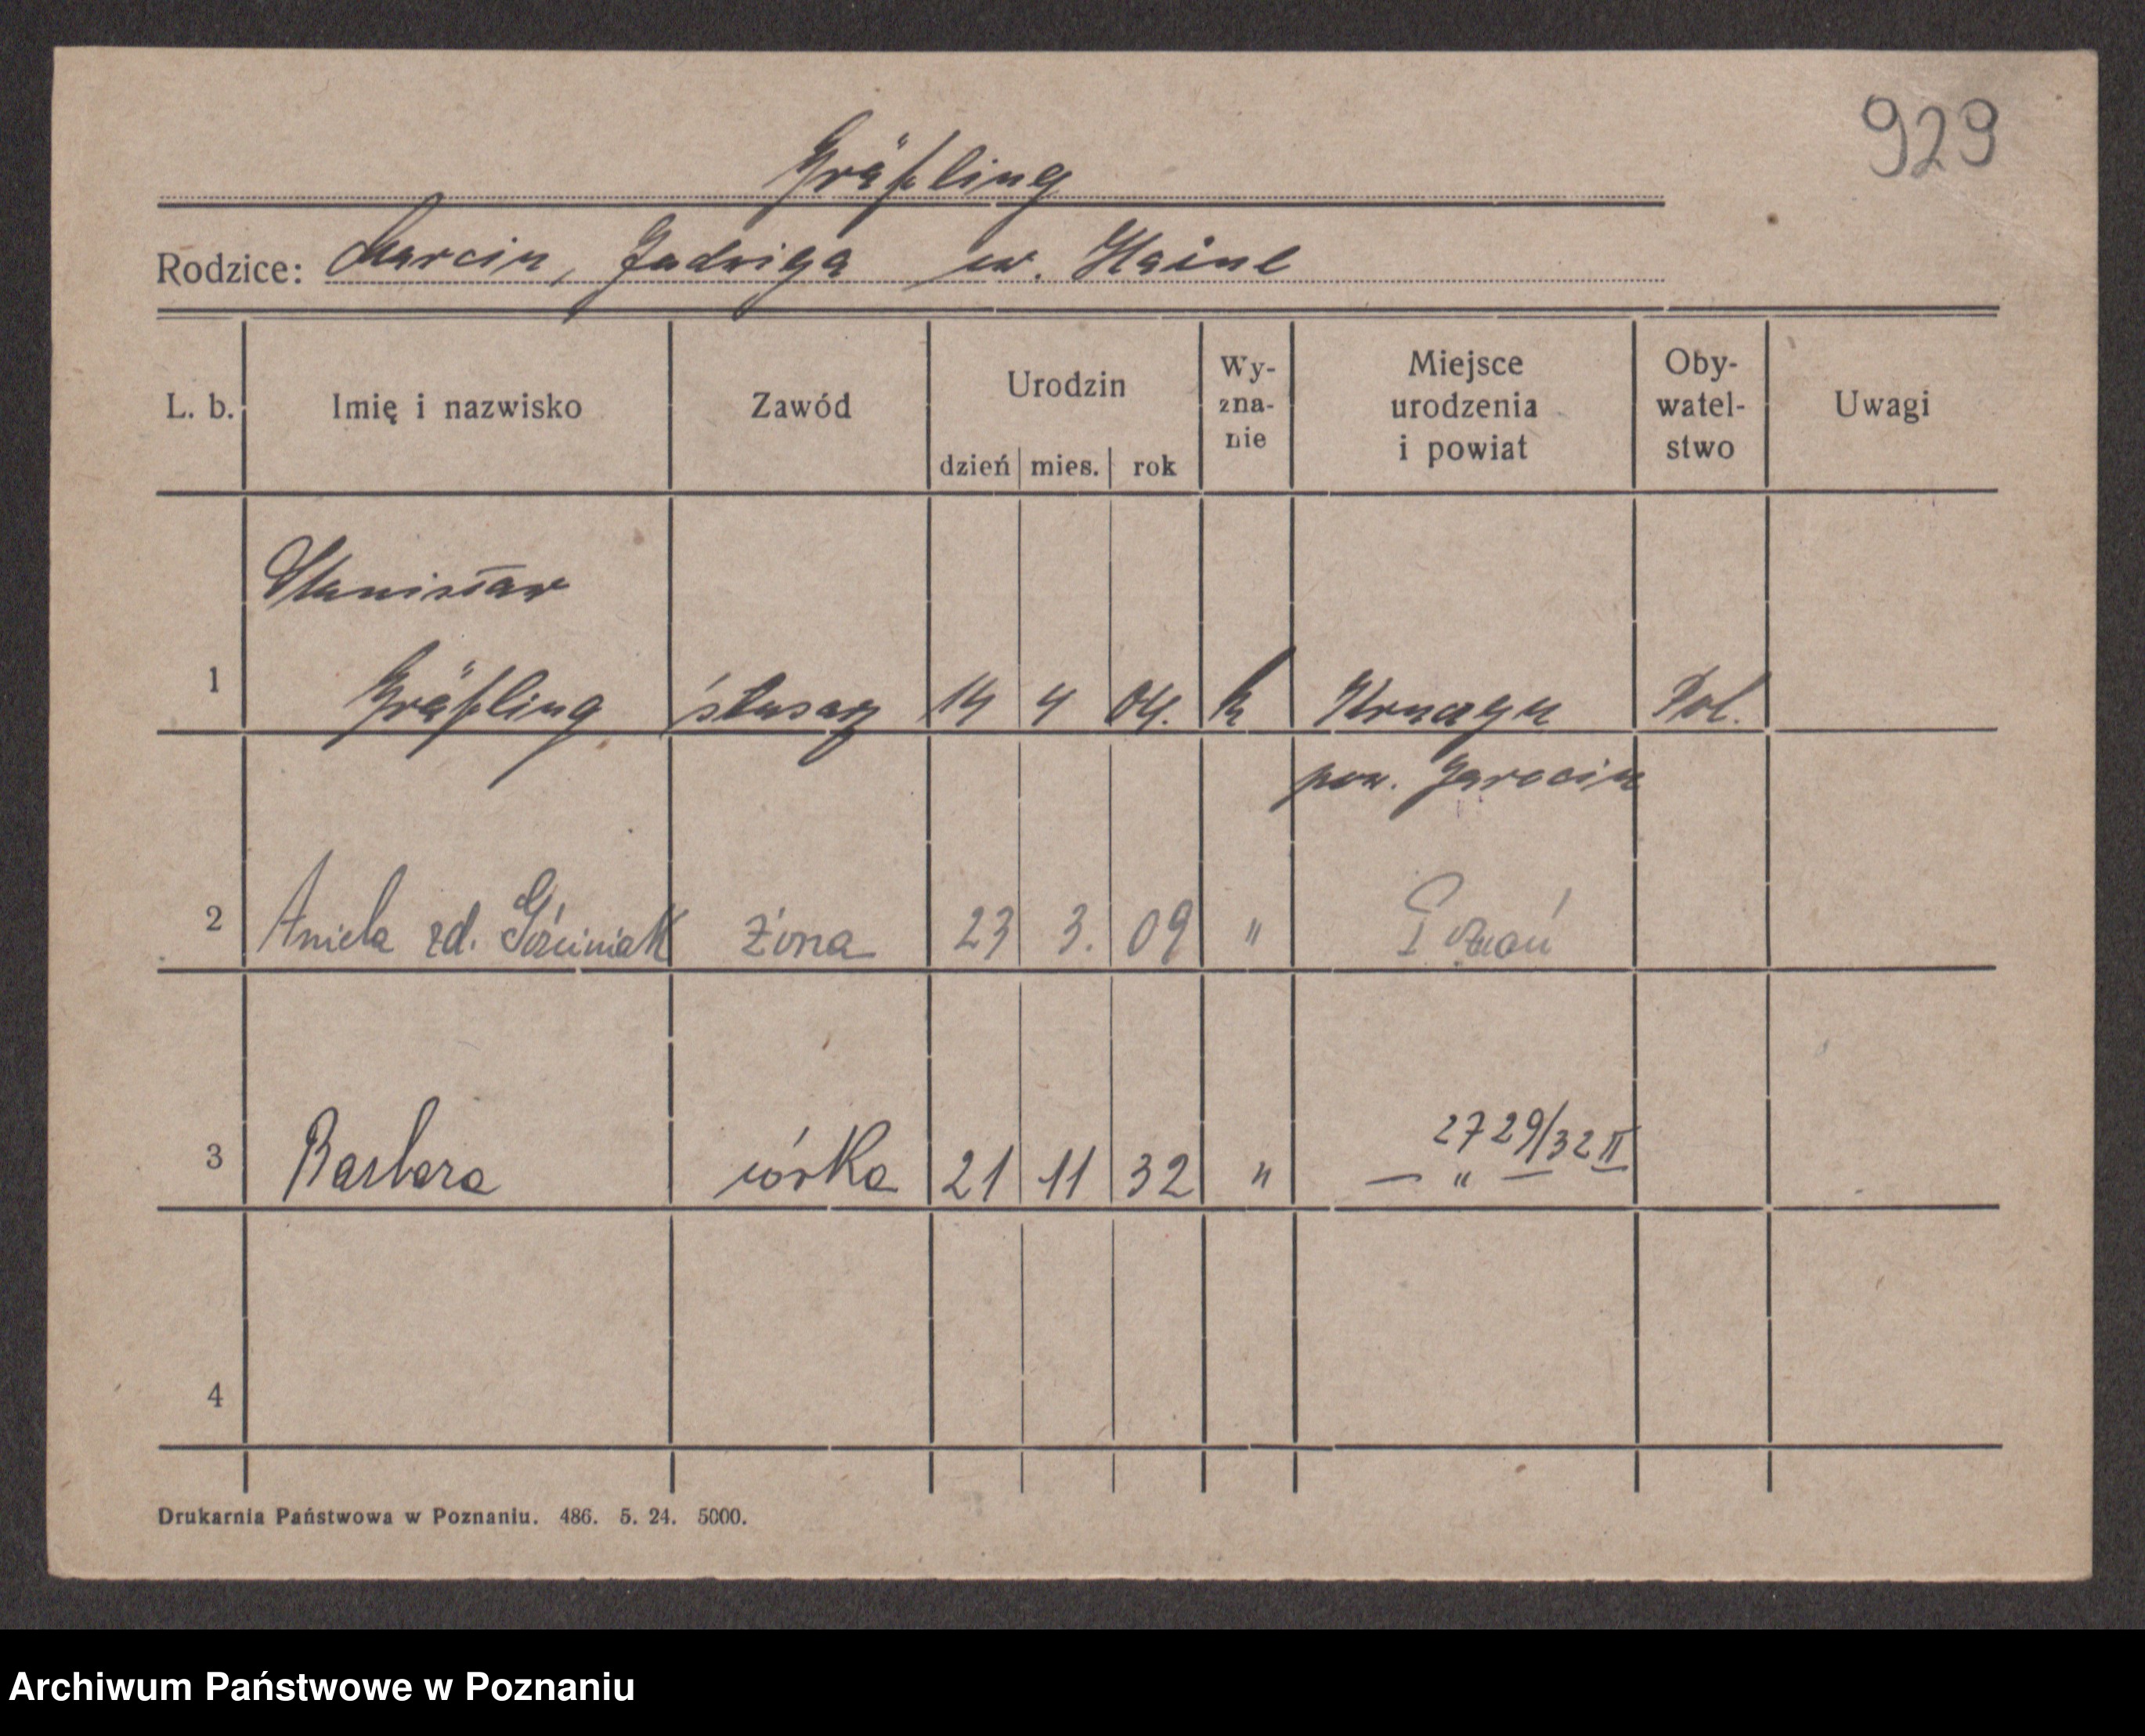 929
Gräfling
Rodzice: Marcin, Jadwiga ur. Heinl
L. b. Imię i nazwisko Zawód Urodzin dzień mies. rok Wy-zna-nie Miejsce urodzenia i powiat Oby-watel-stwo Uwagi
Stanisław
1 Gräfling ślusarz 14 4 04. k Pol.
pow. Jarocin
2 Aniela zd. żona 23 3. 09 " Poznań
2729/32 II
3 Barbara córka 21 11 32 " — " —
4
Drukarnia Państwowa w Poznaniu. 486. 5. 24. 5000.
Archiwum Państwowe w Poznaniu